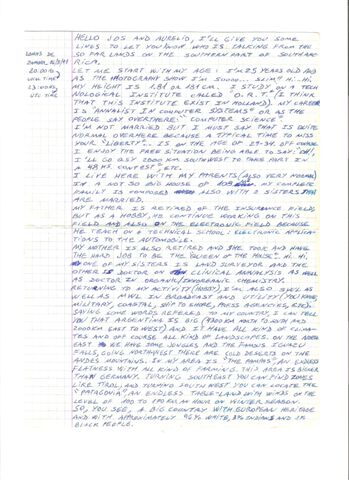 HELLO JOS AND AURELIO, I'LL GIVE YOU SOME
LINES TO LET YOU KNOW WHO IS TALKING FROM THE
SO FAR LANDS ON THE SOUTHERN PART OF SOUTHAME-
RICA.
LOMAS DE
ZAMORA,
UTC TIME
UTC TIME
LET ME START WITH MY AGE: I'M 25 YEARS OLD AND
AS THE PHOTOGRAPH SHOW I'M SOOOO.... SLIM!! HI. HI.
MY HEIGHT IS 1.81 OR 181 CM. I STUDY ON A TECH
NOLOGICAL INSTITUTE CALLED "O.R.T." (I THINK
THAT THIS INSTITUTE EXIST IN HOLLAND). MY CAREER
IS "ANALIST IN COMPUTER SYSTEMS" OR AS THE
PEOPLE SAY OVERTHERE: "COMPUTER SCIENCE"
I'M NOT MARRIED BUT I MUST SAY THAT IS QUITE
NORMAL OVERHERE BECAUSE A TYPICAL TIME TO MISS
YOUR "LIBERTY"... IS ON THE AGE OF 29-34. OF COURSE
I ENJOY THE FREE SENTATION BEING ABLE TO SAY "OH!,
I'LL GO 2000 KM SOUTHWEST TO TAKE PART IN
A 48 HS. CONTEST", ETC.
I LIVE HERE WITH MY PARENTS (ALSO VERY NORMAL)
IN A NOT SO BIG HOUSE OF MY COMPLETE
FAMILY IS COMPOSED ALSO WITH 2 SISTERS
ARE MARRIED.
MY FATHER IS RETIRED OF THE INSURANCE FIELD,
BUT AS A HOBBY, HE CONTINUE WORKING ON THIS
FIELD AND ALSO ON THE ELECTRONIC FIELD BECAUSE
HE TEACH ON A TECHNICAL SCHOOL: ELECTRONIC APPLICA-
TIONS TO THE AUTOMOBILE.
MY MOTHER IS ALSO RETIRED AND SHE TOOK AND HAVE
THE HARD JOB TO BE THE "QUEEN OF THE HOUSE". HI. HI.
ONE OF MY SISTERS IS LAND SURVEYOR AND THE
OTHER IS DOCTOR ON CLINICAL ANALYSIS AS WELL
AS DOCTOR IN ORGANIC/INORGANIC CHEMISTRY.
RETURNING TO MY ACTIVITY (HOBBY), I'M ALSO SWL AS
WELL AS MWL IN BROADCAST AND UTILITY (YOU KNOW,
MILITARY, COASTAL, SHIP TO SHORE, PRESS AGENCIES, ETC).
SAYING SOME WORDS REFERED TO MY COUNTRY, I CAN TELL
YOU THAT ARGENTINE IS BIG (4000 KM NORTH TO SOUTH AND
2000 KM EAST TO WEST) AND IT HAVE ALL KIND OF CLIMA-
TES AND OFF COURSE ALL KIND OF LANDSCAPES. ON THE NORTH
EAST WE HAVE SOME JUNGLES AND THE FAMOUS IGUAZU
FALLS, GOING NORTHWEST THERE ARE COLD DESERTS ON THE
ANDES MOUNTAINS. IN MY AREA IS "THE PAMPAS", AN ENDLESS
FLATNESS WITH ALL KIND OF FARMING. THIS AREA IS BIGGER
THAN GERMANY. TURNING SOUTHWEST YOU CAN FIND ZONES
LIKE TIROL, AND TURNING SOUTH WEST YOU CAN LOCATE THE
"PATAGONIA", AN ENDLESS TABLE-LAND WITH WINDS ON THE
LEVEL OF 100 TO 140 KM. AN HOUR ON WINTER SEASON.
SO, YOU SEE, A BIG COUNTRY WITH EUROPEAN HERITAGE
AND WITH APROXIMATELY 96% WHITE, 3% INDIANS AND 1%
BLACK PEOPLE.